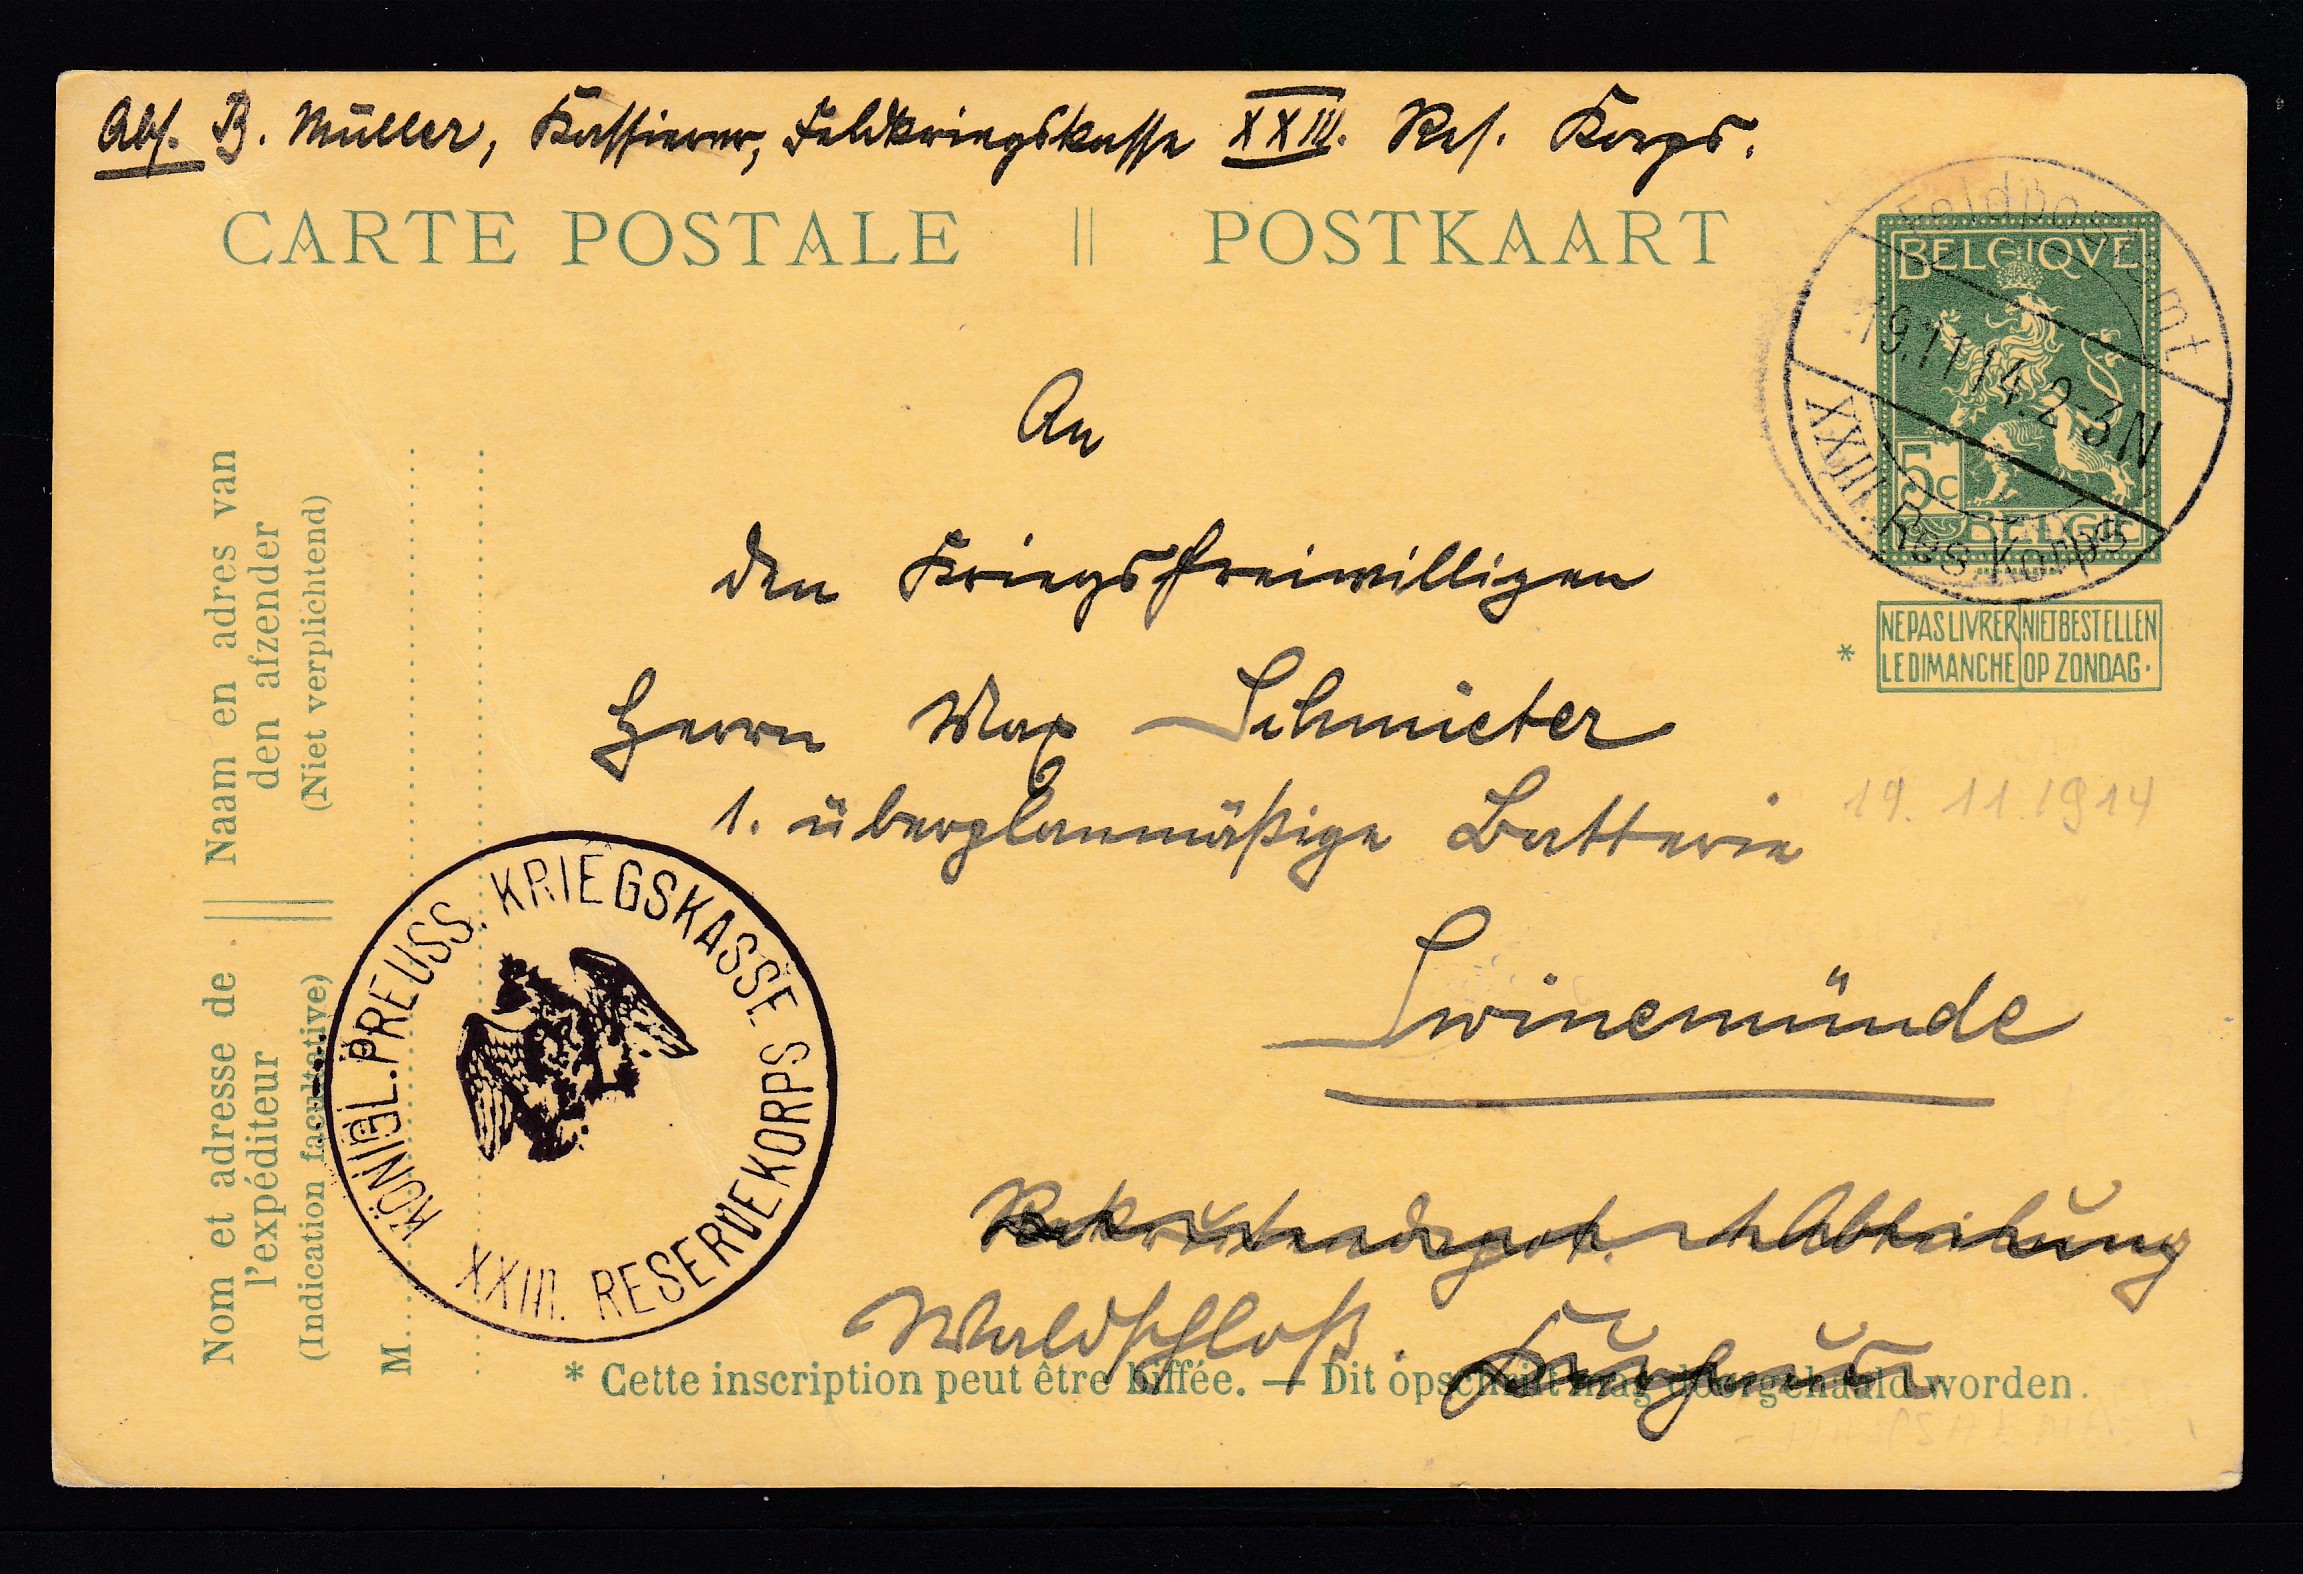 Abs. B. Müller, Kassierer, Feldkriegskasse XXIII. Res. Korps.
CARTE POSTALE || POSTKAART
Feldpostamt
19.11.14. 2-3N
XXIII. Res. Korps
BELGIQVE
5c
BELGIË
NE PAS LIVRER LE DIMANCHE
NIET BESTELLEN OP ZONDAG.
*
An
den Kriegsfreiwilligen
Herrn Max Schmieter
1. überplanmäßige Batterie
19. 11. 1914
Swinemünde
Rekrutendepot Abteilung
Waldschloß.
Naam en adres van
den afzender
(Niet verplichtend)
Nom et adresse de
l'expéditeur
(Indication facultative)
M
KÖNIGL. PREUSS. KRIEGSKASSE
XXIII. RESERVEKORPS
* Cette inscription peut être biffée. — Dit opschrift mag doorgehaald worden.